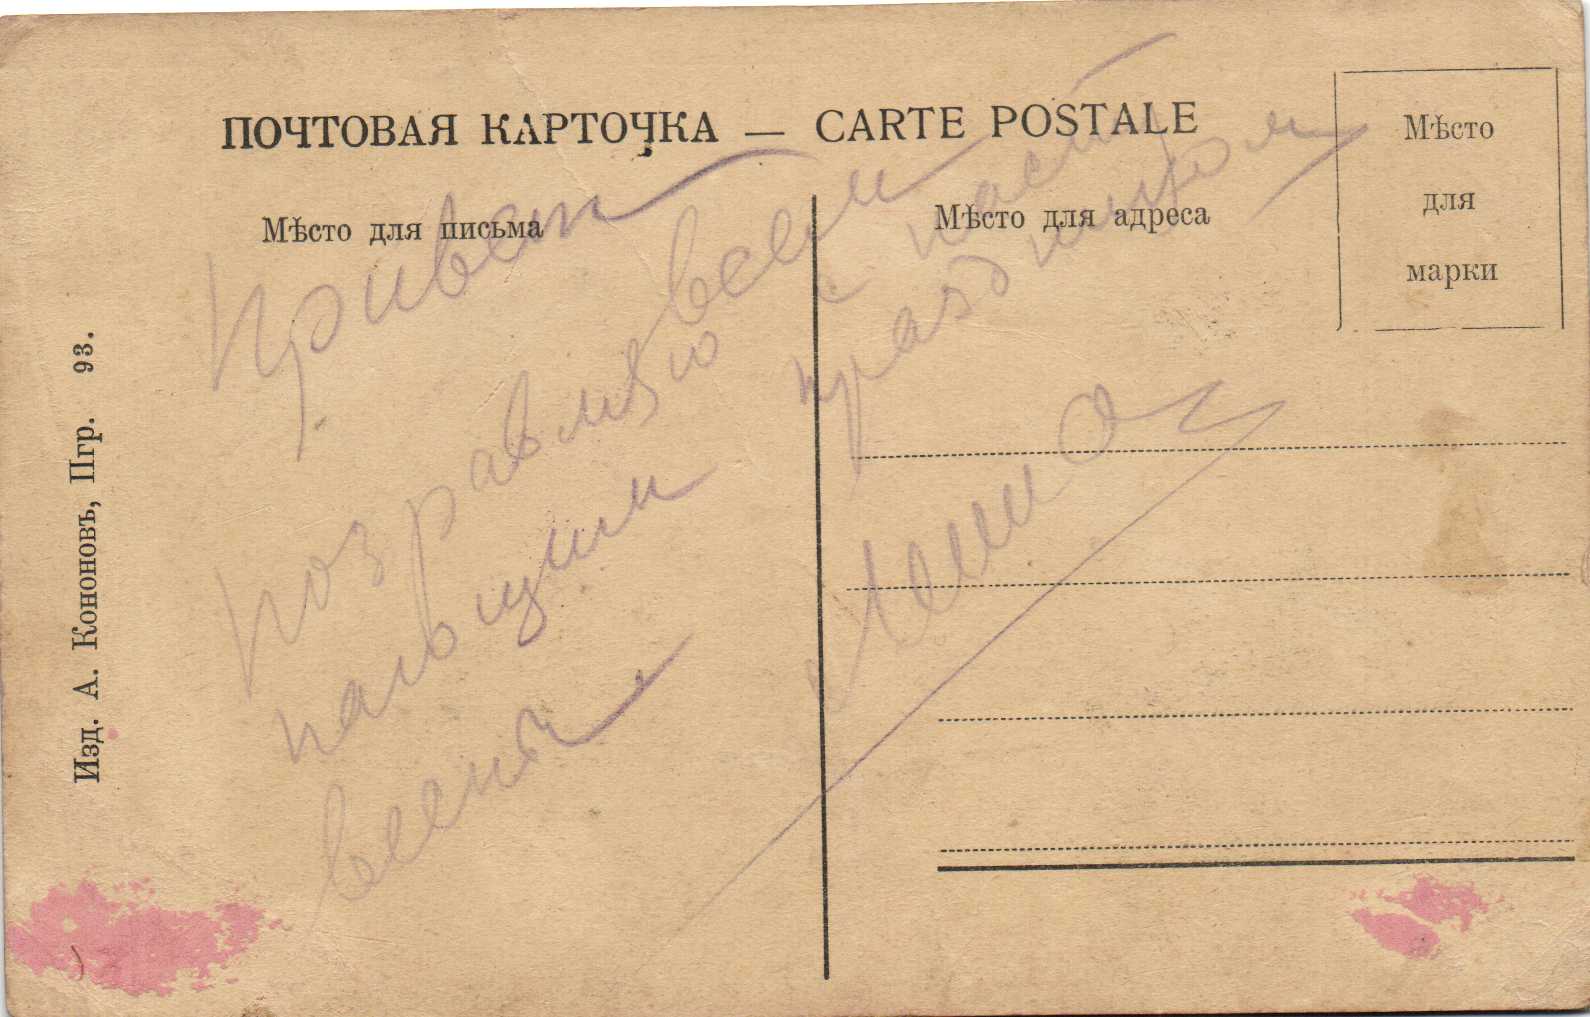 ПОЧТОВАЯ КАРТОЧКА — CARTE POSTALE
Мѣсто для письма
Мѣсто для адреса
Мѣсто
для
марки
Изд. А. Кононовъ, Пгр. 93.
Привет
позравляю всем
с наст
праздником